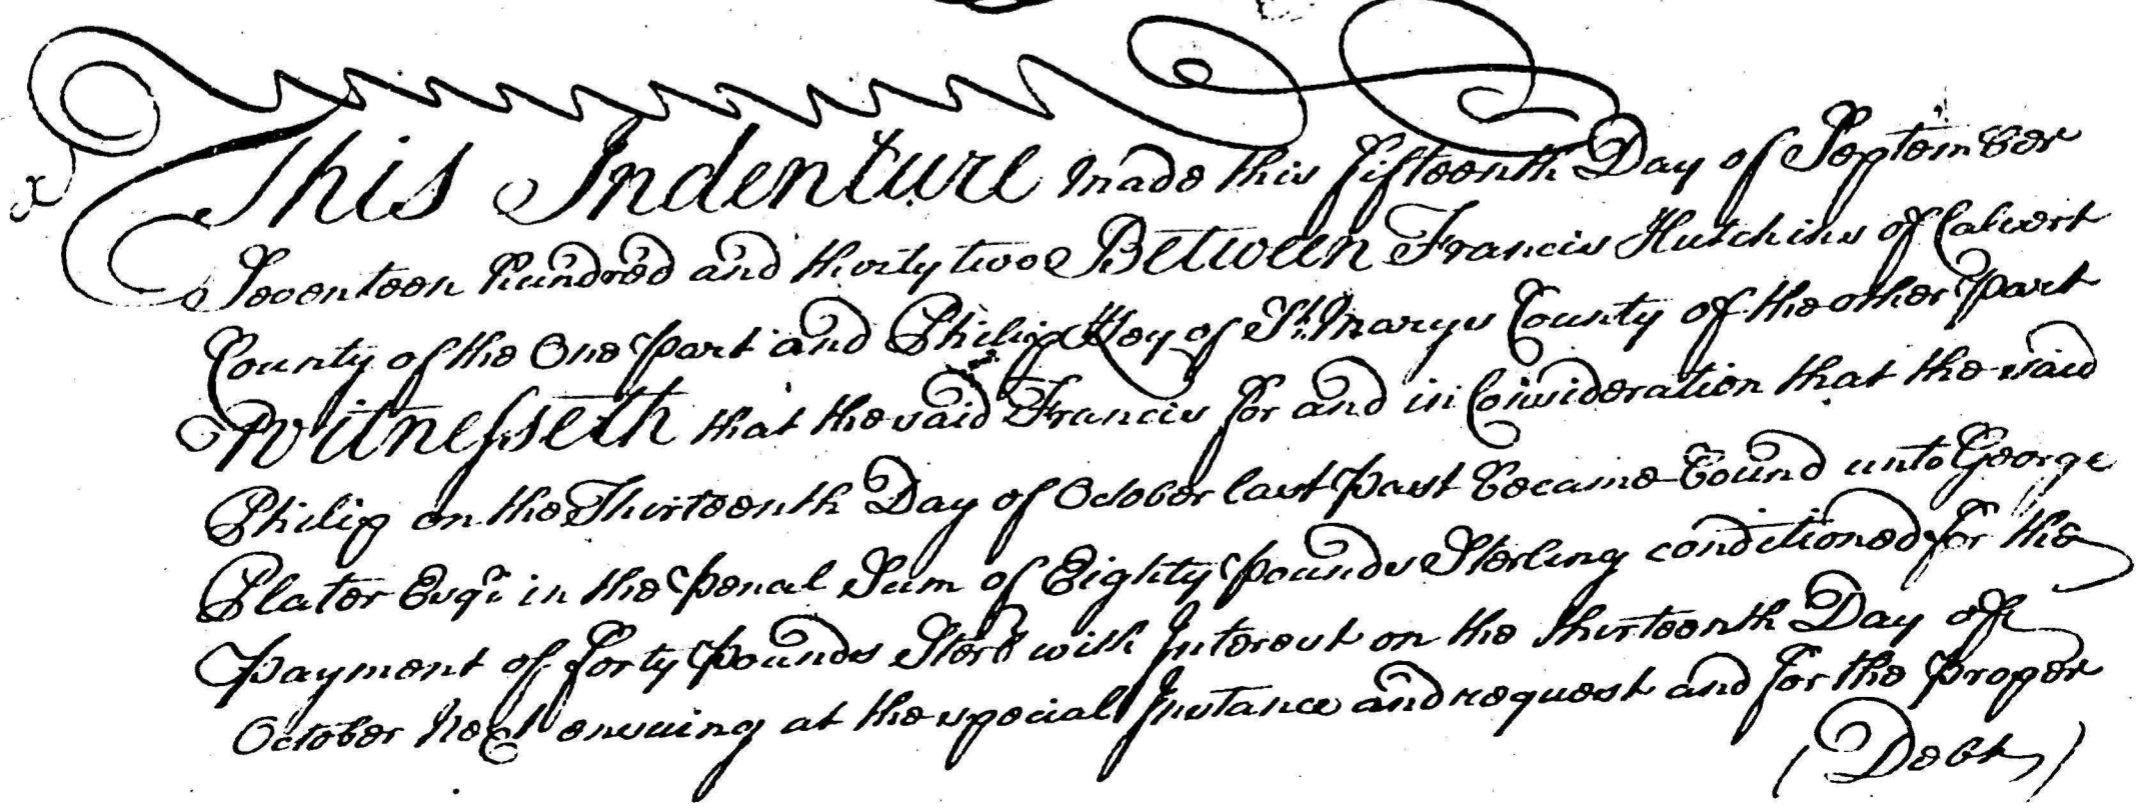 This Indenture made this fifteenth Day of September
Seventeen hundred and thirty two Between Francis Hutchins of Calvert
County of the One Part and Philip Key of St. Marys County of the other Part
Witnesseth that the said Francis for and in Consideration that the said
Philip on the Thirteenth Day of October last Past became bound unto George
Plater Esqr. in the Penal Sum of Eighty Pounds Sterling conditioned for the
Payment of forty Pounds Sterl with Interest on the thirteenth Day of
October next ensuing at the special Instance and request and for the Proper
(Debt)